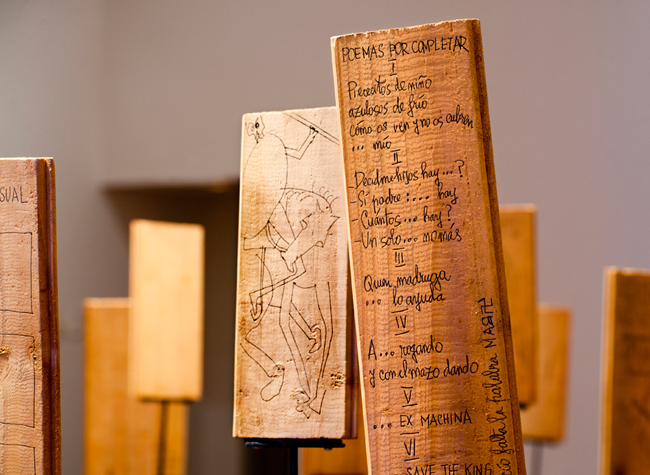 SUAL
POEMAS POR COMPLETAR
I
Piececitos de niño
azulosos de frío
cómo os ven y no os cubren
... mío
II
Decidme hijos hay ...?
-Sí padre: ... hay
-Cuántos ... hay?
-Un solo ... no más
III
Quien madruga
... lo ayuda
IV
A ... rogando
y con el mazo dando
V
... EX MACHINA
VI
SAVE THE KING
falta la palabra